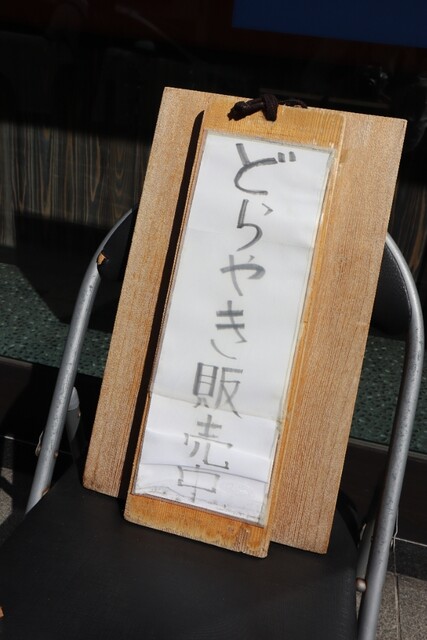 どらやき販売中